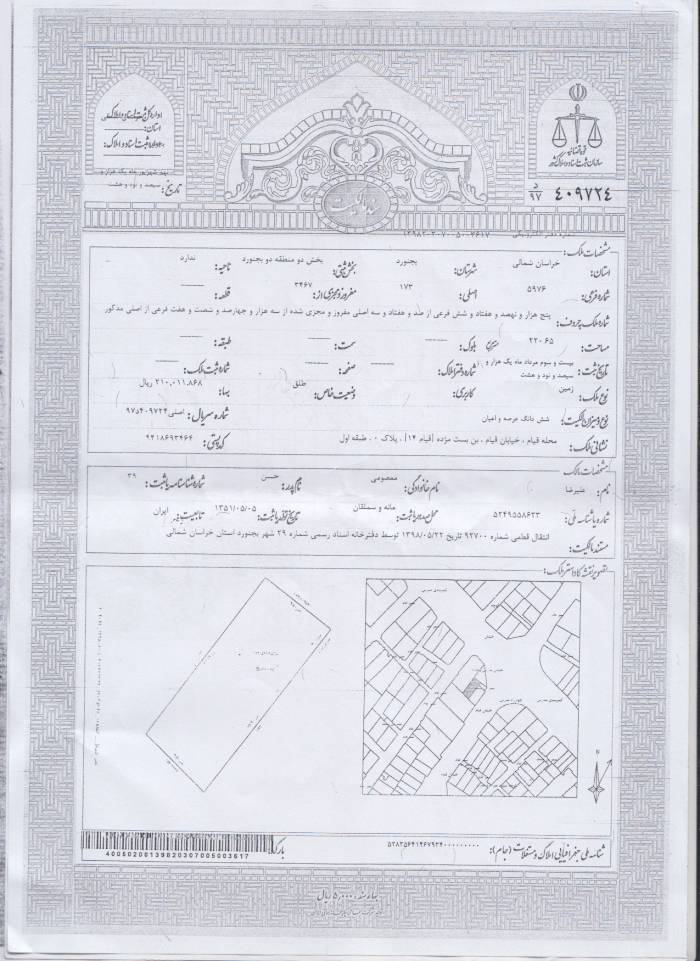 اداره کل ثبت اسناد و املاک
استان:
اداره ثبت اسناد و املاک
نهم شهریور ماه یک هزار و
سیصد و نود و هشت
تاریخ:
قوه قضائیه
سازمان ثبت اسناد و املاک کشور
د
۹۷
۴۰۹۷۲۴
سند مالکیت
شماره دفتر الکترونیکی
مشخصات ملک:
استان: خراسان شمالی شهرستان: بجنورد بخش ثبتی: بخش دو منطقه دو بجنورد ناحیه: ندارد
شماره فرعی: ۵۹۷۶ اصلی: ۱۷۳ مفروز و مجزی از: ۳۴۶۷ قطعه:
شماره ملک بحروف: پنج هزار و نهصد و هفتاد و شش فرعی از صد و هفتاد و سه اصلی مفروز و مجزی شده از سه هزار و چهارصد و شصت و هفت فرعی از اصلی مذکور
مساحت: ۲۲۰۶۵ مترمربع بلوک: سمت: طبقه:
تاریخ ثبت: بیست و سوم مرداد ماه یک هزار و سیصد و نود و هشت شماره دفتر املاک: صفحه: شماره ثبت ملک:
نوع ملک: زمین کاربری: وضعیت خاص: طلق بها: ۲۱۰,۰۱۱,۸۶۸ ریال
نوع و میزان مالکیت: شش دانگ عرصه و اعیان شماره سریال: اصلی ۹۷۵۴۰۹۷۲۴
نشانی ملک: محله قیام ، خیابان قیام ، بن بست مژده [قیام ۱۴] ، پلاک ۰ ، طبقه اول کد پستی: ۹۴۱۸۶۹۳۴۶۴
مشخصات مالک:
نام: علیرضا نام خانوادگی: معصومی نام پدر: حسن شماره شناسنامه یا ثبت: ۳۹
شماره یا شناسه ملی: ۵۲۴۹۵۵۸۶۳۳ محل صدور یا ثبت: مانه و سملقان تاریخ تولد یا ثبت: ۱۳۵۱/۰۵/۰۵ تابعیت: ایران
مستند مالکیت: انتقال قطعی شماره ۹۲۷۰۰ تاریخ ۱۳۹۸/۰۵/۲۲ توسط دفترخانه اسناد رسمی شماره ۲۹ شهر بجنورد استان خراسان شمالی.
تصویر نقشه کاداستر ملک:
N
شناسه ملی جغرافیایی املاک و مستغلات (جام):
بارکد:
40050200139820307005003617
بهاء سند: ۵۰,۰۰۰ ریال